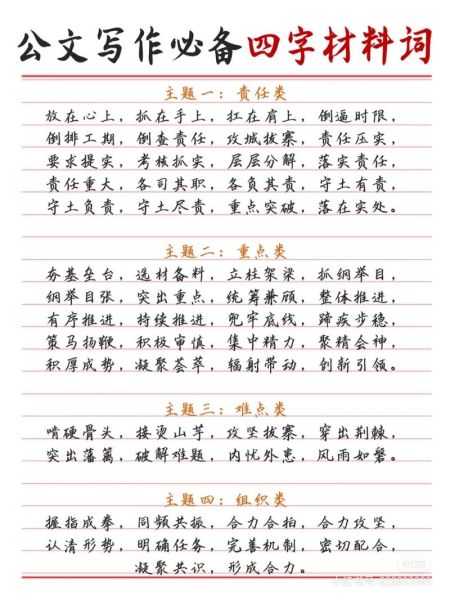 公文写作必备四字材料词
主题一：责任类
放在心上，抓在手上，扛在肩上，倒逼时限，
倒排工期，倒查责任，攻城拔寨，责任压实，
要求提实，考核抓实，层层分解，落实责任，
责任重大，各司其职，各负其责，守土有责，
守土负责，守土尽责，重点突破，落在实处。
主题二：重点类
夯基垒台，选材备料，立柱架梁，抓纲举目，
纲举目张，突出重点，统筹兼顾，整体推进，
有序推进，持续推进，兜牢底线，蹄疾步稳，
策马扬鞭，积极审慎，集中精力，聚精会神，
积厚成势，凝聚荟萃，辐射带动，创新引领。
主题三：难点类
啃硬骨头，接烫山芋，攻坚拔寨，穿出荆棘，
突出藩篱，破解难题，内忧外患，风雨如磐。
主题四：组织类
握指成拳，同频共振，合力合拍，合力攻坚，
认清形势，明确任务，完善机制，密切配合，
凝聚共识，形成合力。
小红书